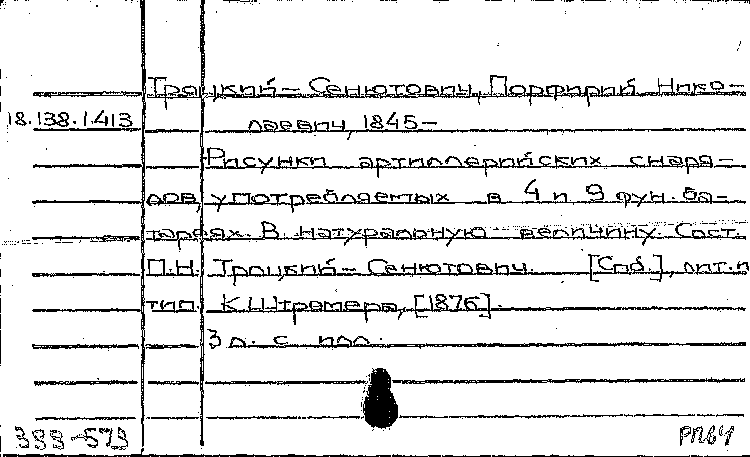 Троцкий-Сенютович, Порфирий Нико-
18.138.1.413 лаевич, 1845-
Рисунки артиллерийских снаря-
дов, употребляемых в 4 и 9 фун. ба-
тареях. В натуральную величину. Сост.
П.Н. Троцкий-Сенютович. [Спб.], лит. и
тип. К. Штремера, [1876].
3 л. с илл.
393-573